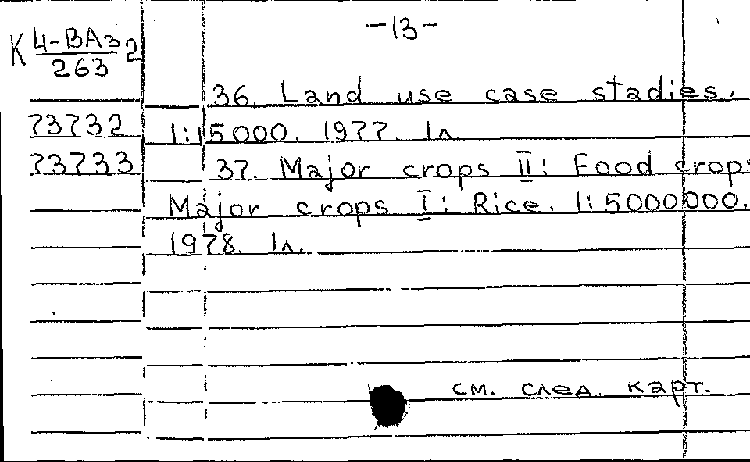 -13-
К 4-ВАз2
263
36. Land use case stadies.
73732 1:15000. 1977. 1л
73733 37. Major crops II: Food crop
Major crops I: Rice. 1:5000000.
1978. 1л.
см. след. карт.